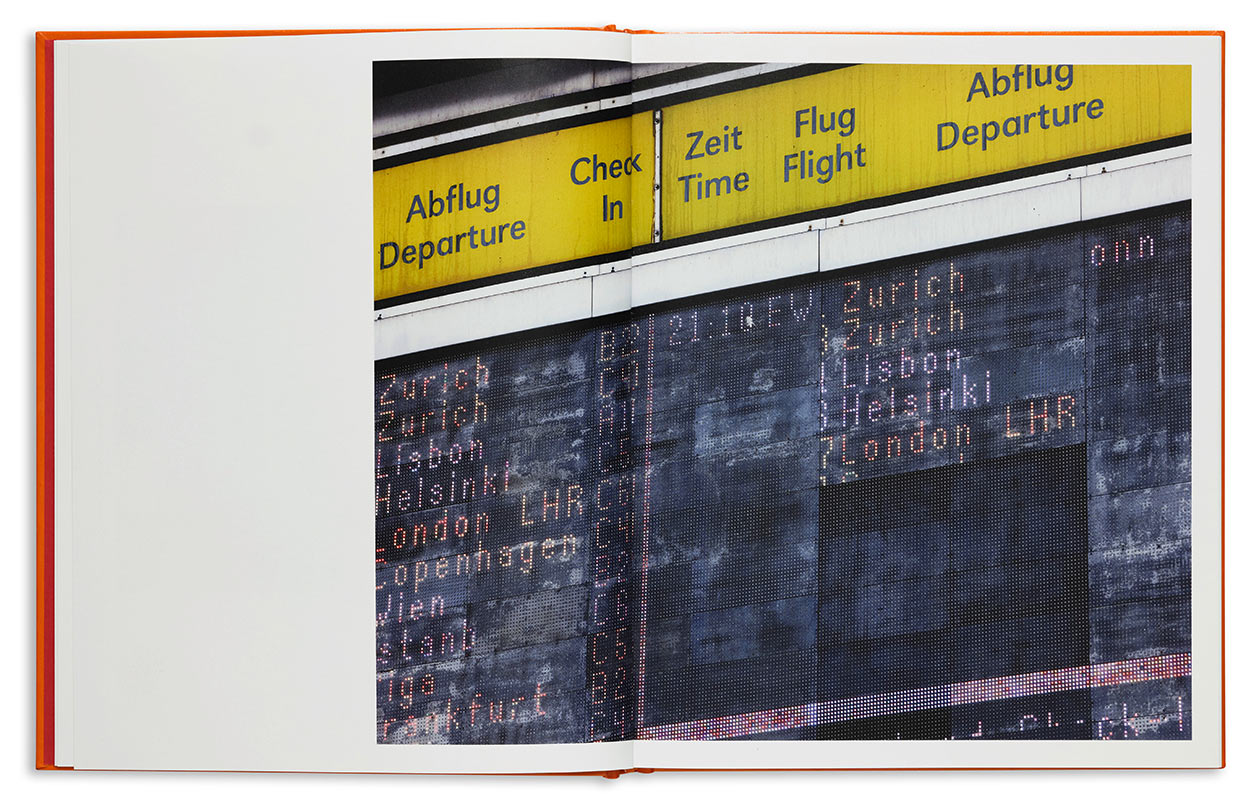 Abflug
Departure
Check
In
Zeit
Time
Flug
Flight
Abflug
Departure
Zurich
Zurich
Lisbon
Helsinki
London LHR
Copenhagen
Wien
stanb
iga
rankfurt
B2
C6
C4
C6
B2
21:10 EW
Zurich
Zurich
Lisbon
Helsinki
London LHR
onn